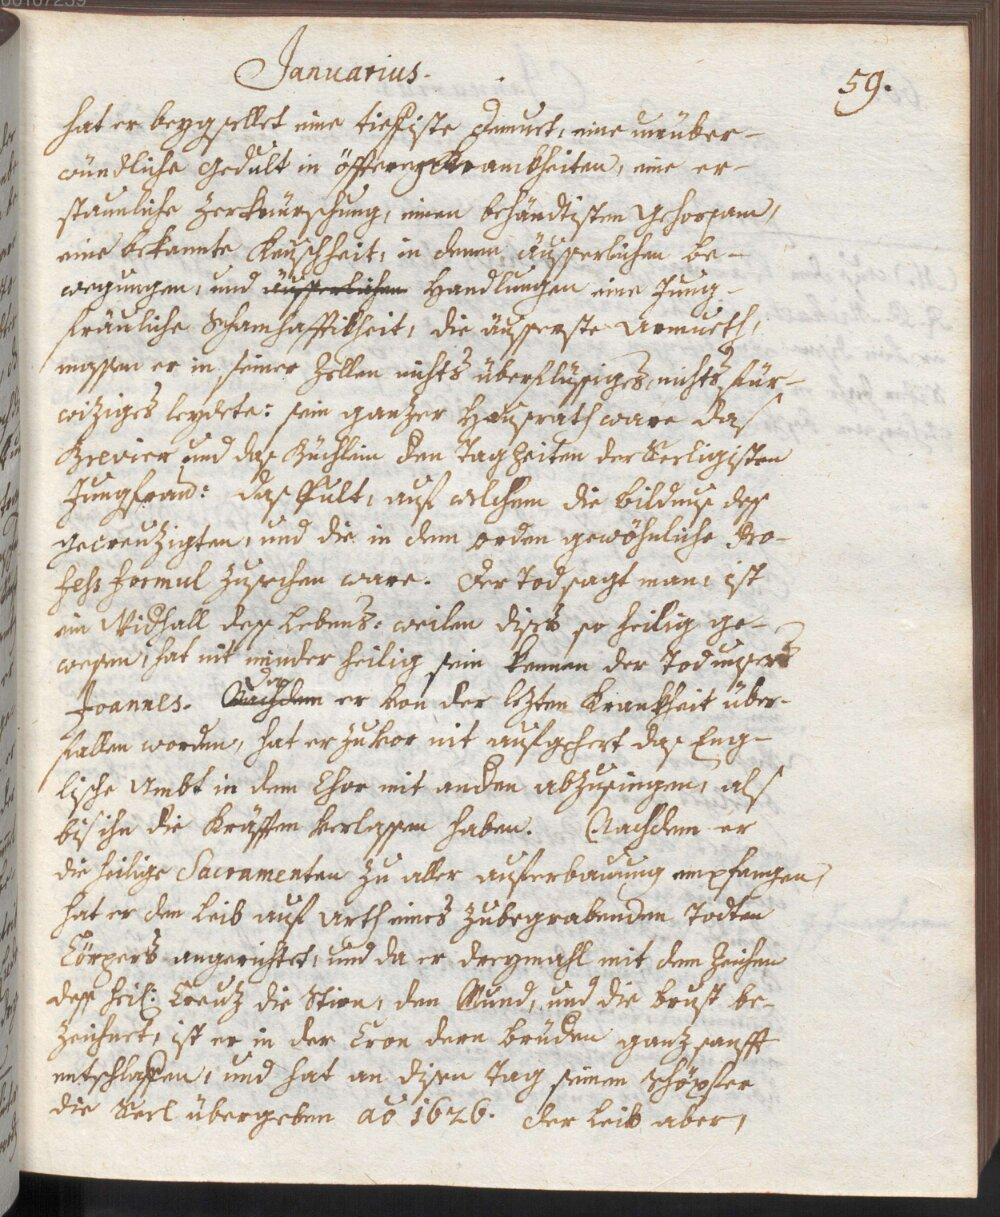 00107239
Januarius.
59.
hat er beygesellet eine tieffiste Demuet, eine unüber-
wündliche Gedult in öffteren Krankheiten, eine er-
staunliche Zerknürschung, einen behändtisten Gehorsam,
eine bekannte Keuschheit, in denen äusserlichen be-
wegungen, und äusserlichen Handlungen eine Jung-
fräuliche Schamhafftikheit, die äusserste Armueth,
massen er in seiner Zellen nichts überflüssiges, nichts für-
wiziges leydete: sein ganzer Hausrath ware das
Brevier und das Büchlein den Tagzeiten der Seeligisten
Jungfrau: das Pult, auf welchem die bildnus dess
gecreuzigten, und die in dem orden gewöhnliche Pro-
fess formul zusechen ware. Der Tod sagt man, ist
ein Widhall dess Lebens: weilen dises so heilig ge-
wesen, hat nit minder heilig sein kennen der Tod unsers
Joannes. Nachdem er von der lezten Krankheit über-
fallen worden, hat er zuvor nit aufgehert das Eng-
lische Ambt in dem Chor mit anden abzusingen, als
bis ihn die Kräfften verlassen haben. Nachdem er
die heilige Sacramenten zu aller auferbauung empfangen,
hat er den Leib auf Arth eines zubegrabenden Todten
Cörpers angerichtet, und da er dreymahl mit dem Zeichen
dess heil: Creutz die Stirn, den Mund, und die brust be-
zeichnet, ist er in der Cron dern brüden ganz sanfft
entschlaffen, und hat an disen Tag seinem Schöpfer
die Seel übergeben ao 1626. Der Leib aber,